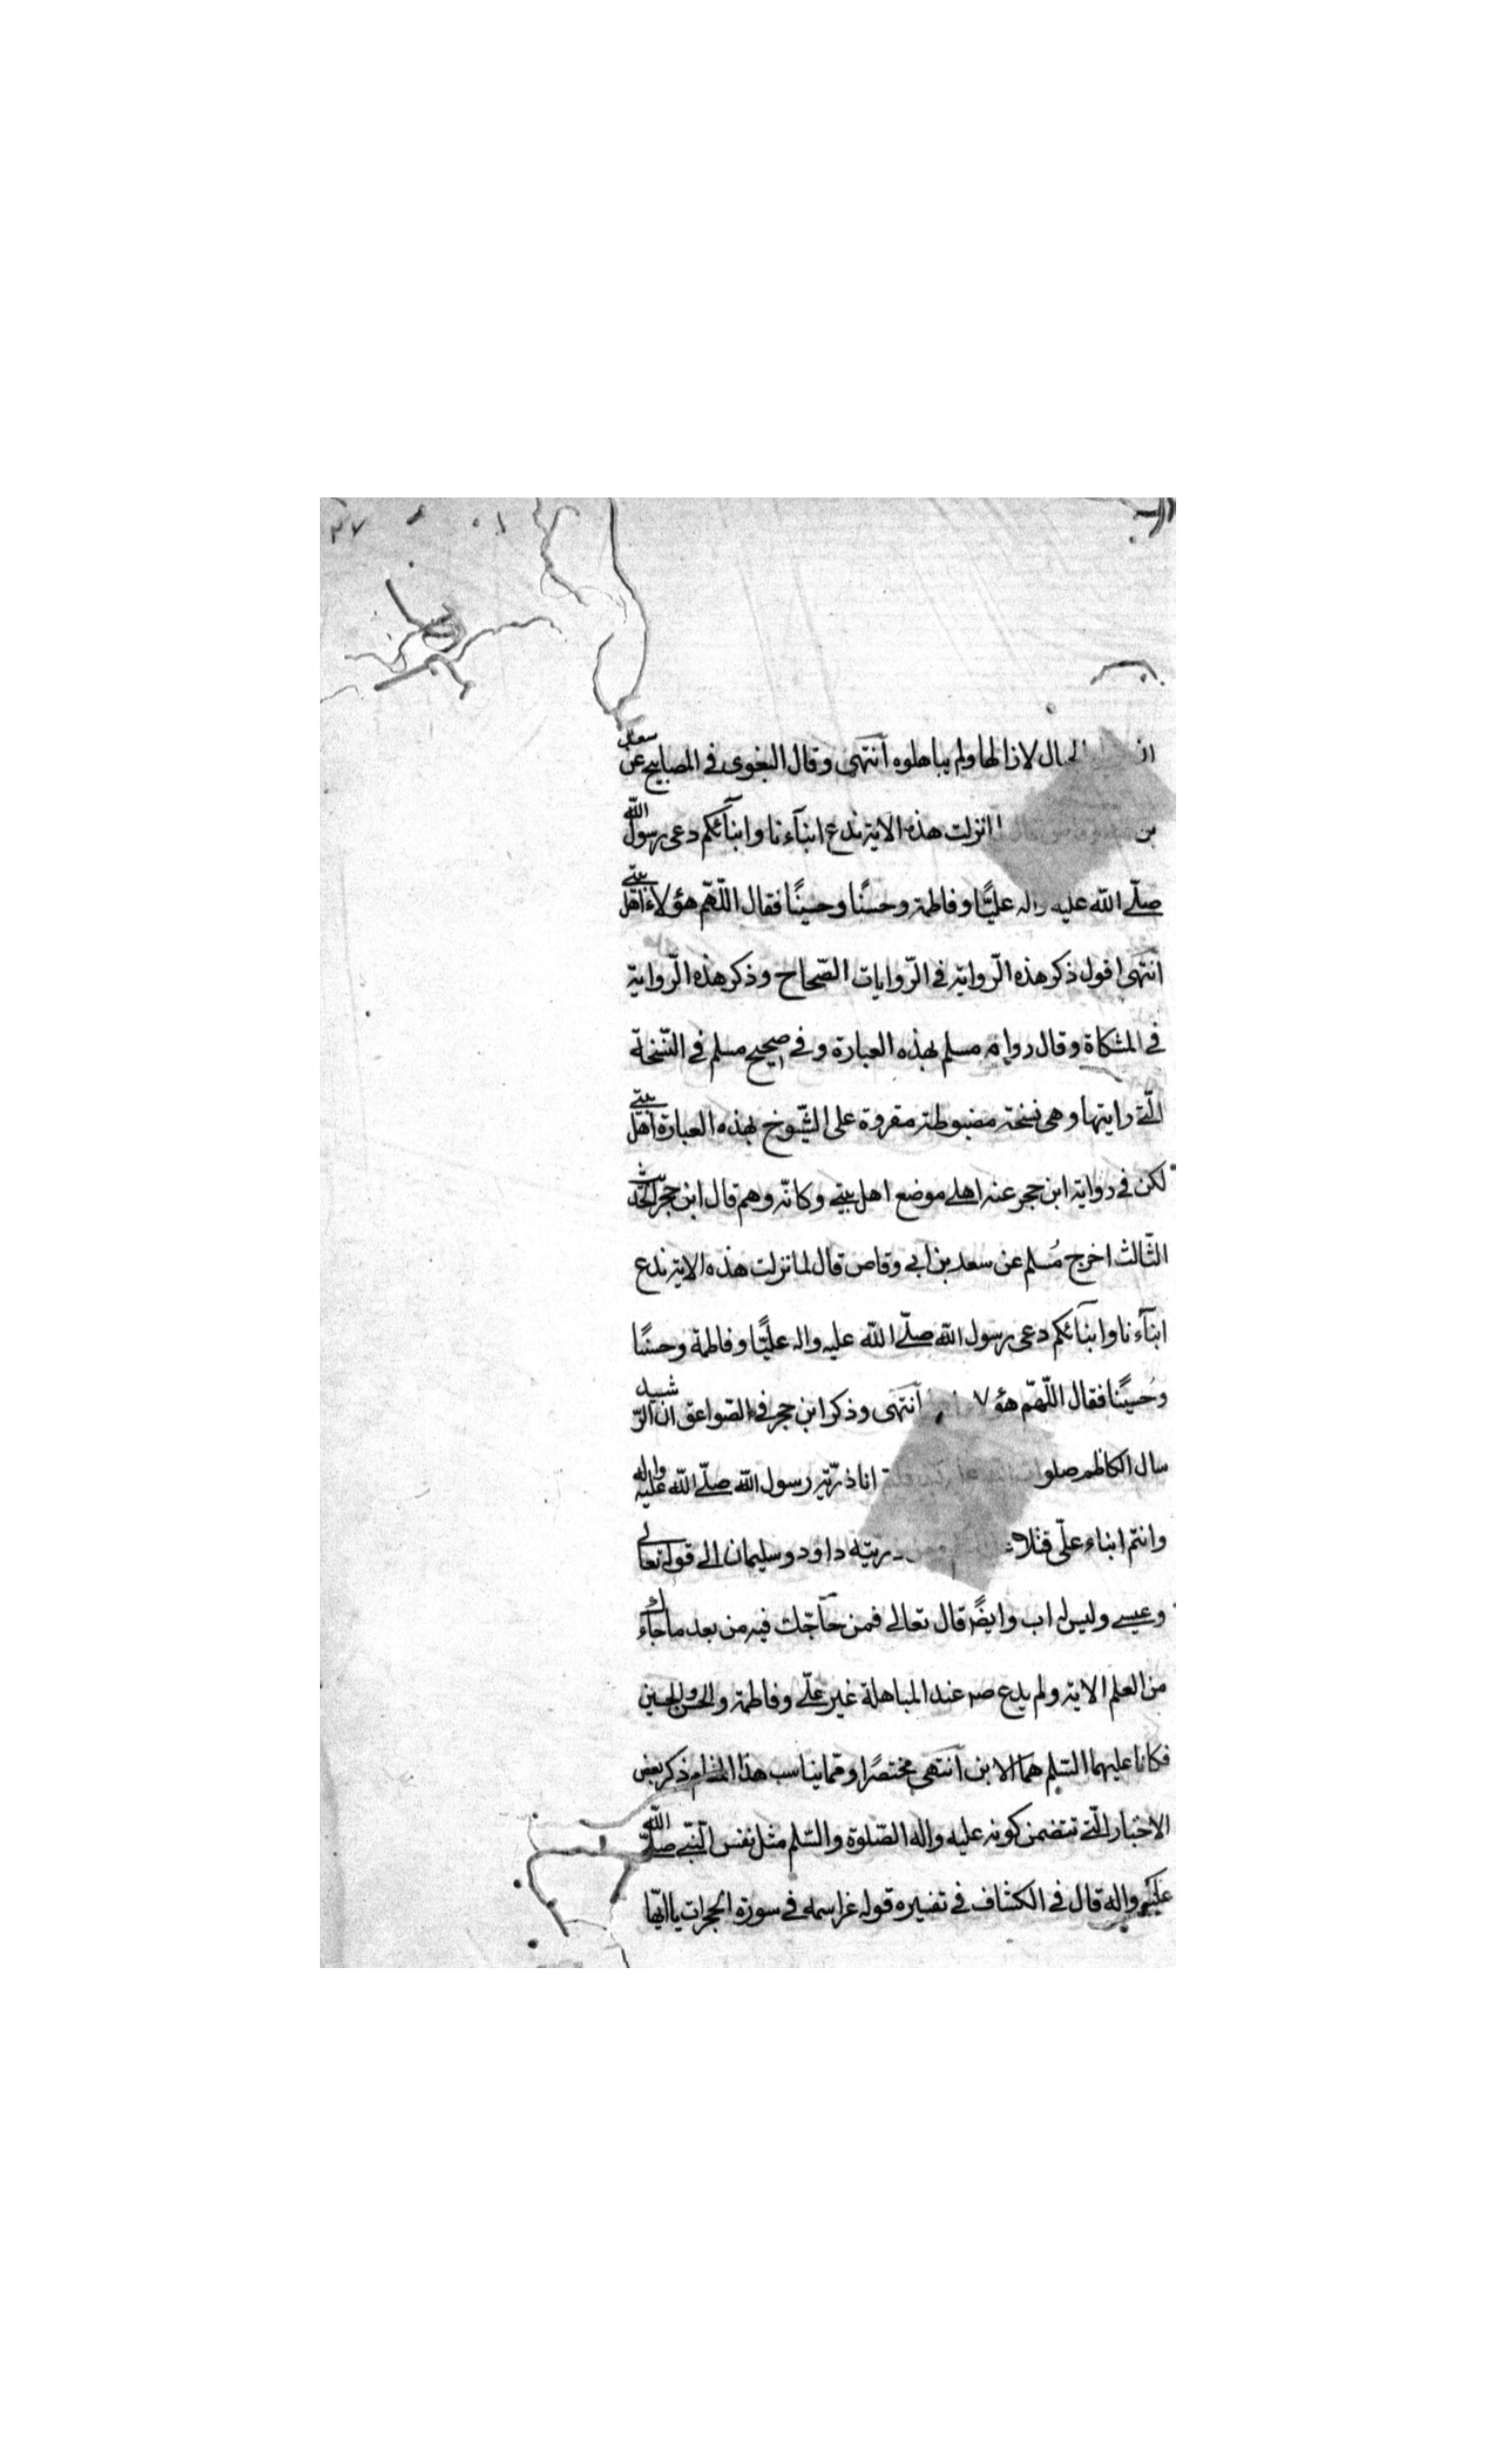 ٣٧
الجبال لازالها ولم يباهلوه انتهى وقال البغوى فى المصابيح عن سعد
بن انزلت هذه الاية ندع ابنآءنا وابنآئكم دعى رسول الله
صلّى الله عليه واله عليًّا وفاطمة وحسنًا وحسينًا فقال اللّهمّ هؤلاء اهل بيتى
انتهى اقول ذكر هذه الرّواية فى الرّوايات الصّحاح وذكر هذه الرّواية
فى المشكاة وقال رواه مسلم بهذه العبارة وفى صحيح مسلم فى النّسخة
الّتى رايتها وهى نسخة مضبوطة مقروة على الشّيوخ بهذه العبارة اهل بيتى
لكن فى رواية ابن حجر عنه اهلى موضع اهل بيتى وكانّه وهم قال ابن حجر الحديث
الثّالث اخرج مُسلم عن سعد بن ابى وقاص قال لما نزلت هذه الاية ندع
ابنآءنا وابنآئكم دعى رسول الله صلّى الله عليه واله عليًّا وفاطمة وحسنًا
وحُسينًا فقال اللّهمّ هؤلا انتهى وذكر ابن حجر فى الصّواعق ان الرّشيد
سال الكاظم صلوات الله عليه كيف قلتم انا ذرّيّة رسول الله صلّى الله عليه واله
وانتم ابناء علىّ فتلا ومن ذريّته داود وسليمان الى قوله تعالى
وعيسى وليس له اب وايضًا قال تعالى فمن حآجّك فيه من بعد ما جاءك
من العلم الاية ولم يدع صم عند المباهلة غير علّى وفاطمة والحسن والحسين
فكانا عليهما السّلم هما الابن انتهى مختصرًا وممّا يناسب هذا المقام ذكر بعض
الاخبار الّتى تتضمن كونه عليه واله الصّلوة والسّلم مثل نفس النّبّى صلّى الله
عليه واله قال فى الكشاف فى تفسيره قوله عز اسمه فى سورة الحجرات يا ايّها